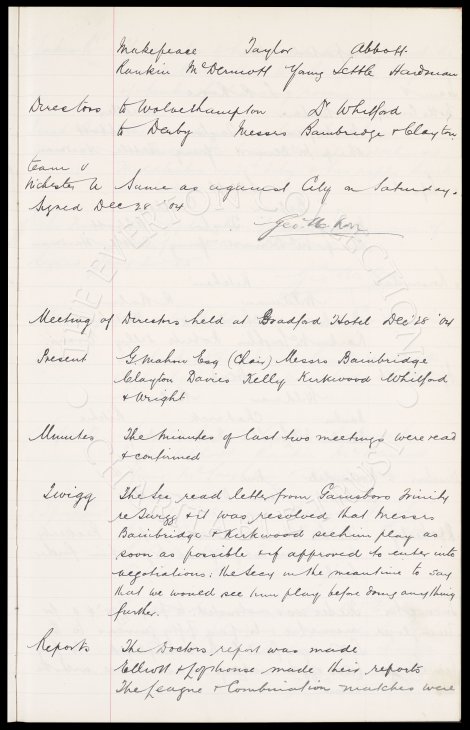 Makepeace Taylor Abbott
Rankin McDermott Young Settle Hardman
Directors to Wolverhampton Dr Whitford
to Derby Messrs Bainbridge & Clayton.
team v
Same as against City on Saturday.
Signed Dec 28 '04
Geo. Mahon
Meeting of Directors held at Bradford Hotel Dec 28 '04
Present G. Mahon Esq (Chair) Messrs Bainbridge
Clayton Davies Kelly Kirkwood Whitford
& Wright
Minutes The Minutes of last two meetings were read
& confirmed
Twigg The Sec read letter from Gainsboro Trinity
re Twigg & it was resolved that Messrs
Bainbridge & Kirkwood see him play as
soon as possible & if approved to enter into
negotiations; the Secy in the meantime to say
that we would see him play before doing anything
further.
Reports The Doctors report was made
Elliott & Lofthouse made their reports
The League & Combination matches were
THE EVERTON COLLECTION